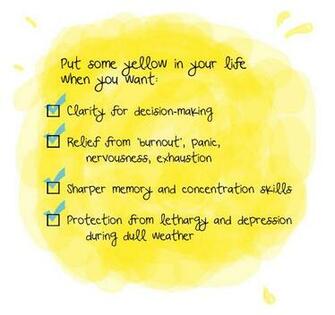 Put some yellow in your life
when you want:
Clarity for decision-making
Relief from 'burnout', panic,
nervousness, exhaustion
Sharper memory and concentration skills
Protection from lethargy and depression
during dull weather